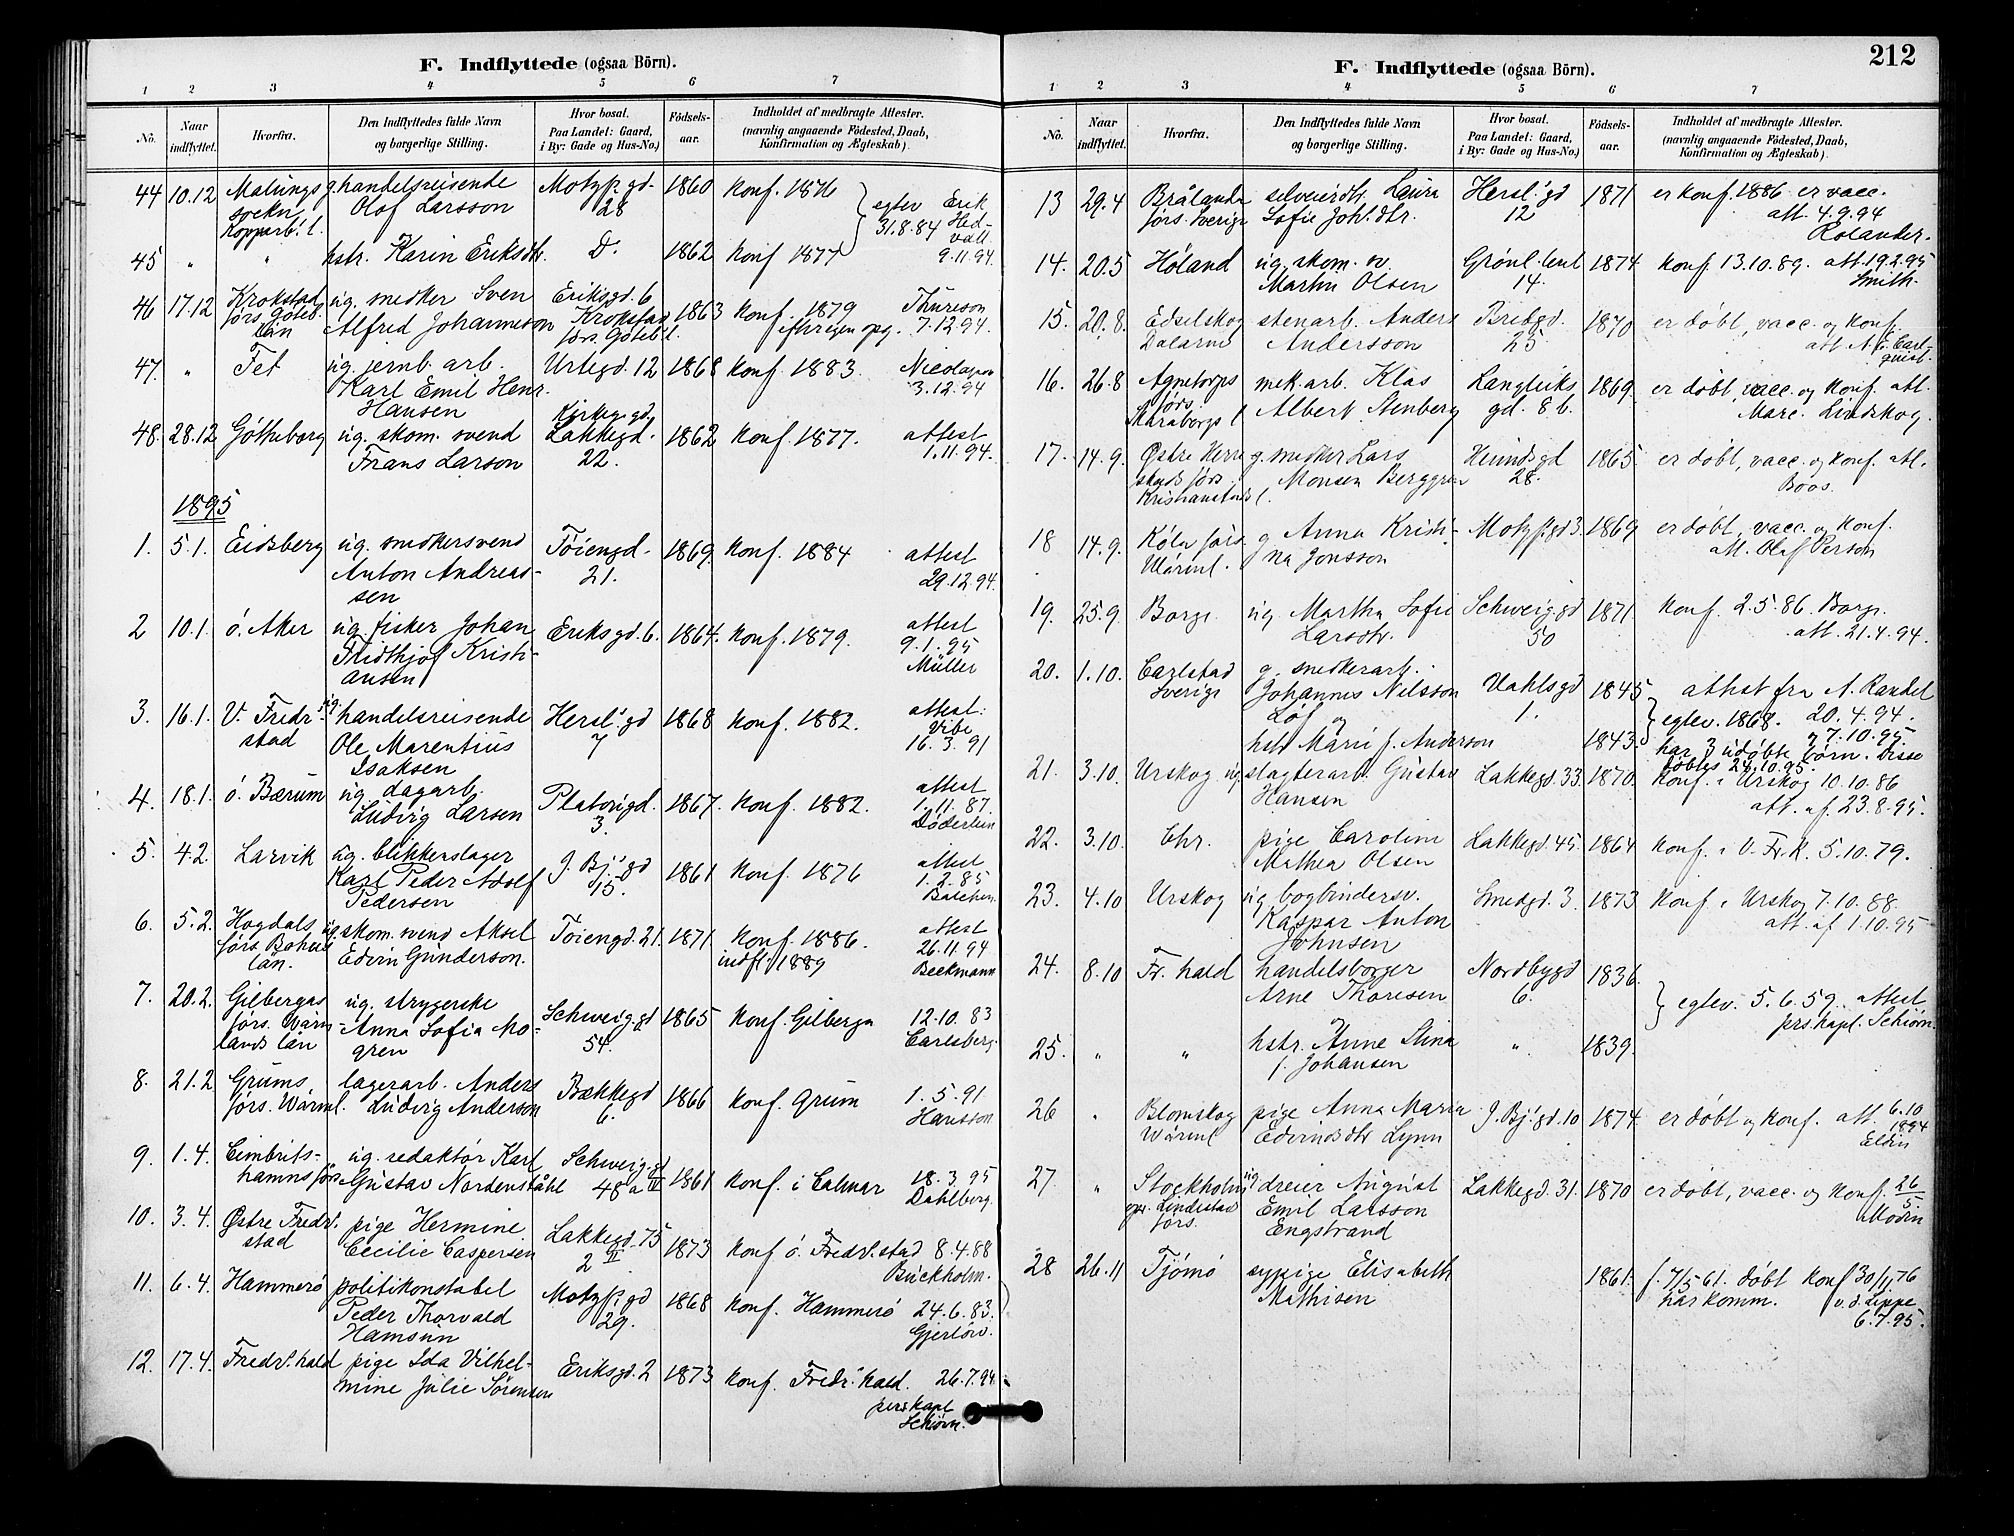 F. Indflyttede (ogsaa Börn).
1 2 3 4 5 6 7
No. Naar indflyttet. Hvorfra. Den Indflyttedes fulde Navn og borgerlige Stilling. Hvor bosat. Paa Landet: Gaard, i By: Gade og Hus-No.) Födsels-aar. Indholdet af medbragte Attester. (navnlig angaaende Födested, Daab, Konfirmation og Ægteskab).
44 10.12 Malungs g. handelsreisende Motzf. gd. 1860 Konf. 1876
socken Olof Larsson 28 egtev Erik
Kopparb. l. 31.8.84 Hed-
vall
45 " " hstr. Karin Eriksdtr. D. 1862 Konf 1877 9.11.94.
46 17.12 Krokstad ug. snedker Sven Eriksgd. 6 1863 Konf. 1879 Thureson
förs. Göteb. Alfred Johanneson Krokstad efter egen opg. 7.12.94.
län förs. Göteb. l.
47. " Fet ug. jernb. arb. Urtegd. 12 1868 Konf. 1883. Nicolaysen
Karl Emil Henr. 3.12.94
Hansen
48. 28.12 Götheborg ug. skom. svend Kirkeg. gd. 1862 Konf. 1877. attest
Frans Larson Lakkegd. 1.11.94.
22.
1895
1. 5.1. Eidsberg ug. snedkersvend Töiengd. 1869. Konf. 1884 attest
Anton Andreas- 21. 29.12.94.
sen
2 10.1. ö. Aker ug. fisker Johan Eriksgd. 6. 1864. Konf. 1879. attest
Fridthjof Kristi- 9.1.95
ansen Müller
3. 16.1. V. Fredr. ug. handelsreisende Hersl. gd 1868 Konf. 1882. attest.
stad Ole Marentius 7 Vibe
Isaksen 16.3.91
4. 18.1. ö. Bærum ug. dagarb. Platougd. 1867. Konf. 1882. attest
Ludvig Larsen 3. 1.11.87
Döderlein
5. 4.2. Larvik ug. blikkenslager J. Bj. gd 1861 Konf. 1876 attest
Karl Peder Adolf 15. 1.2.85
Pedersen
6. 5.2. Hogdals ug. skom. svend Aksel Töiengd. 21. 1871. Konf. 1886. attest
förs Bohus Edvin Gunderson. indfl. 1889 26.11.94
län. Beckmann
7. 20.2. Gilbergas ug. strygerske Schweig. gd 1865 Konf. Gilberga 12.10.83
förs. Wärm- Anna Sofia Mo- 54. Carlsberg.
lands län gren
8. 21.2 Grums lagerarb. Anders Bækkegd 1866 Konf. Grum 1.5.91
förs. Wärml. Ludvig Anderson 6. Hansson
9. 1.4. Cimbrits- ug. redaktör Karl Schweig. gd 1861 Konf. i Calmar 18.3.95
hamns förs Gustav Nordenståhl 48 a IV Dahlberg.
10. 3.4. Østre Fredr. pige Hermine Lakkegd. 75 1873 Konf ö. Fredr. stad 8.4.88
stad Cecilie Caspersen 2 II Buckholm.
11. 6.4. Hammerö politikonstabel Motzf. gd 1868 Konf. Hammerö 24.6.83.
Peder Thorvald 29. Gjerlöw.
Hamsun
12. 17.4. Fredr. hald pige Ida Vilhel- Eriksgd. 2 1873 Konf. Fredr. hald. 26.7.94.
mine Julie Sörensen pers kapl
Schiörn.
212
F. Indflyttede (ogsaa Börn).
1 2 3 4 5 6 7
No. Naar indflyttet. Hvorfra. Den Indflyttedes fulde Navn og borgerlige Stilling. Hvor bosat. Paa Landet: Gaard, i By: Gade og Hus-No.) Födsels-aar. Indholdet af medbragte Attester. (navnlig angaaende Födested, Daab, Konfirmation og Ægteskab).
13 29.4 Brålanda selveierdtr. Laura Hersl. gd 1871 er konf. 1886 er vacc.
förs. Sverige Sofie Joh. dtr. 12 att. 4.9.94
Rolander.
14. 20.5 Höland ug. skom. sv. Grönl. 1874 Konf. 13.10.89. att. 19.2.95
Martin Olsen 14. Smith.
15. 20.8. Edselskog stenarb. Anders Bredgd. 1870 er döbt, vacc. og konf.
Dalarne Andersson 25 att. A. E. Carl-
quist.
16. 26.8 Agnetorps mek. arb. Klas Langleiks 1869. er döbt, vacc. og konf. att.
förs. Albert Stenberg gd. 8 b. Marc. Lindskog.
Skaraborgs l
17. 14.9. Østre Herre g. snedker Lars Heimdsgd 1865. er döbt, vacc. og konf. att.
stads förs. Monsen Berggren 28. Boos.
Kristianstads l.
18 14.9. Köla förs. g Anna Kristi- Motzf. gd 3 1869 er döbt, vacc. og konf.
Wärml. na Jonsson att. Olaf Person
19. 25.9 Borge ug. Martha Sofie Schweig. gd 1871 Konf. 2.5.86. Borge.
Larsdtr. 50 att. 21.4.94.
20. 1.10. Carlstad g. snedkerarb. Vahlsgd 1845 attest fra A. Randel
Sverige Johannes Nilsson 1. egtev. 1868. 20.4.94.
Löf og & 7.10.95
hstr Marie f. Anderson 1843. har 3 udöbte börn. Disse
döbtes 27.10.95.
21. 3.10. Urskog ug. slagterarb. Gustav Lakkegd. 33 1870. Konf. i Urskog 10.10.86
Hansen att. af. 23.8.95.
22. 3.10. Chr. pige Caroline Lakkegd. 45 1864 Konf. i V. Fr. k. 5.10.79.
Mathea Olsen
23. 4.10 Urskog ug bogbindersv. Smedgd. 3. 1873 Konf. i Urskog 7.10.88.
Kaspar Anton att. af 1.10.95
Johnsen
24. 8.10 Fr. hald handelsborger Nordbygd 1836.
Arne Thoresen 6. egtev. 5.6.59. attest
prs. kapl. Schiörn.
25. " " hstr. Anne Stina " 1839.
f. Johansen
26 " Blomskog pige Anna Maria J. Bj. gd. 10 1874. er döbt og konf. att. 6.10
Wärml Edvindsdtr Lynn 1894
Eldin
27. " Stockholm ug dreier August Lakkegd. 31. 1870 er döbt, vacc. og konf. 26/5
Lindestad Emil Larsson Modin
förs. Engstrand
28 26.11 Tjömö sypige Elisabeth 1861. f. 7/5 61. döbt konf 30/11 76
Mathisen har komm. v. d. Lippe
6.7.95.